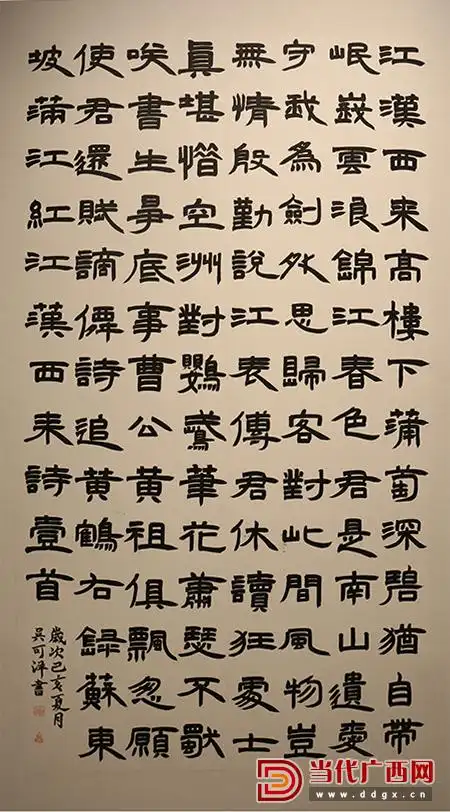 江漢西来高樓下蒲萄深碧猶自帶
岷峩雲浪錦江春色君是南山遺愛
守我為劍外思歸客對此間風物豈
無情殷勤說江表傳君休讀狂處士
眞堪惜空洲對鸚鵡葦花蕭瑟不獨
咲書生爭底事曹公黃祖俱飄忽願
使君還賦謫僊詩追黃鶴右録蘇東
坡滿江紅江漢西来詩壹首
歲次己亥夏月
吳可洋書
当代广西网
www.ddgx.cn